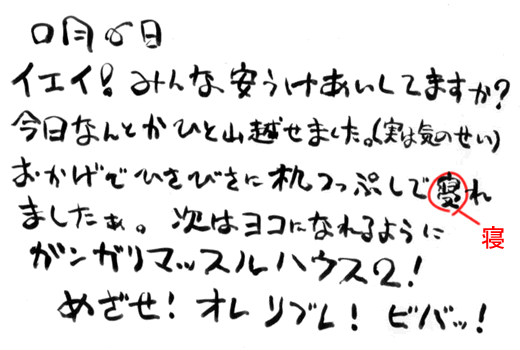 〇月〇日
イエイ！みんな、安うけあいしてますか？
今日なんとかひと山越せました。（実は気のせい）
おかげでひさびさに机つっぷしで寝れ
ましたぁ。次はヨコになれるように
寝
ガンガリマッスルハウス2！
めざせ！オレリブレ！ビバッ！